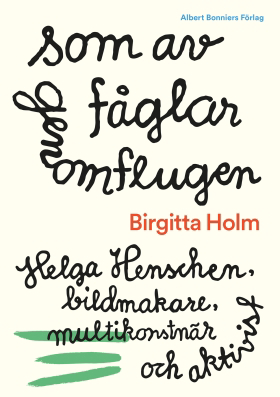 Albert Bonniers Förlag
som av
fåglar
genomflugen
Birgitta Holm
Helga Henschen,
bildmakare,
multikonstnär
och aktivist